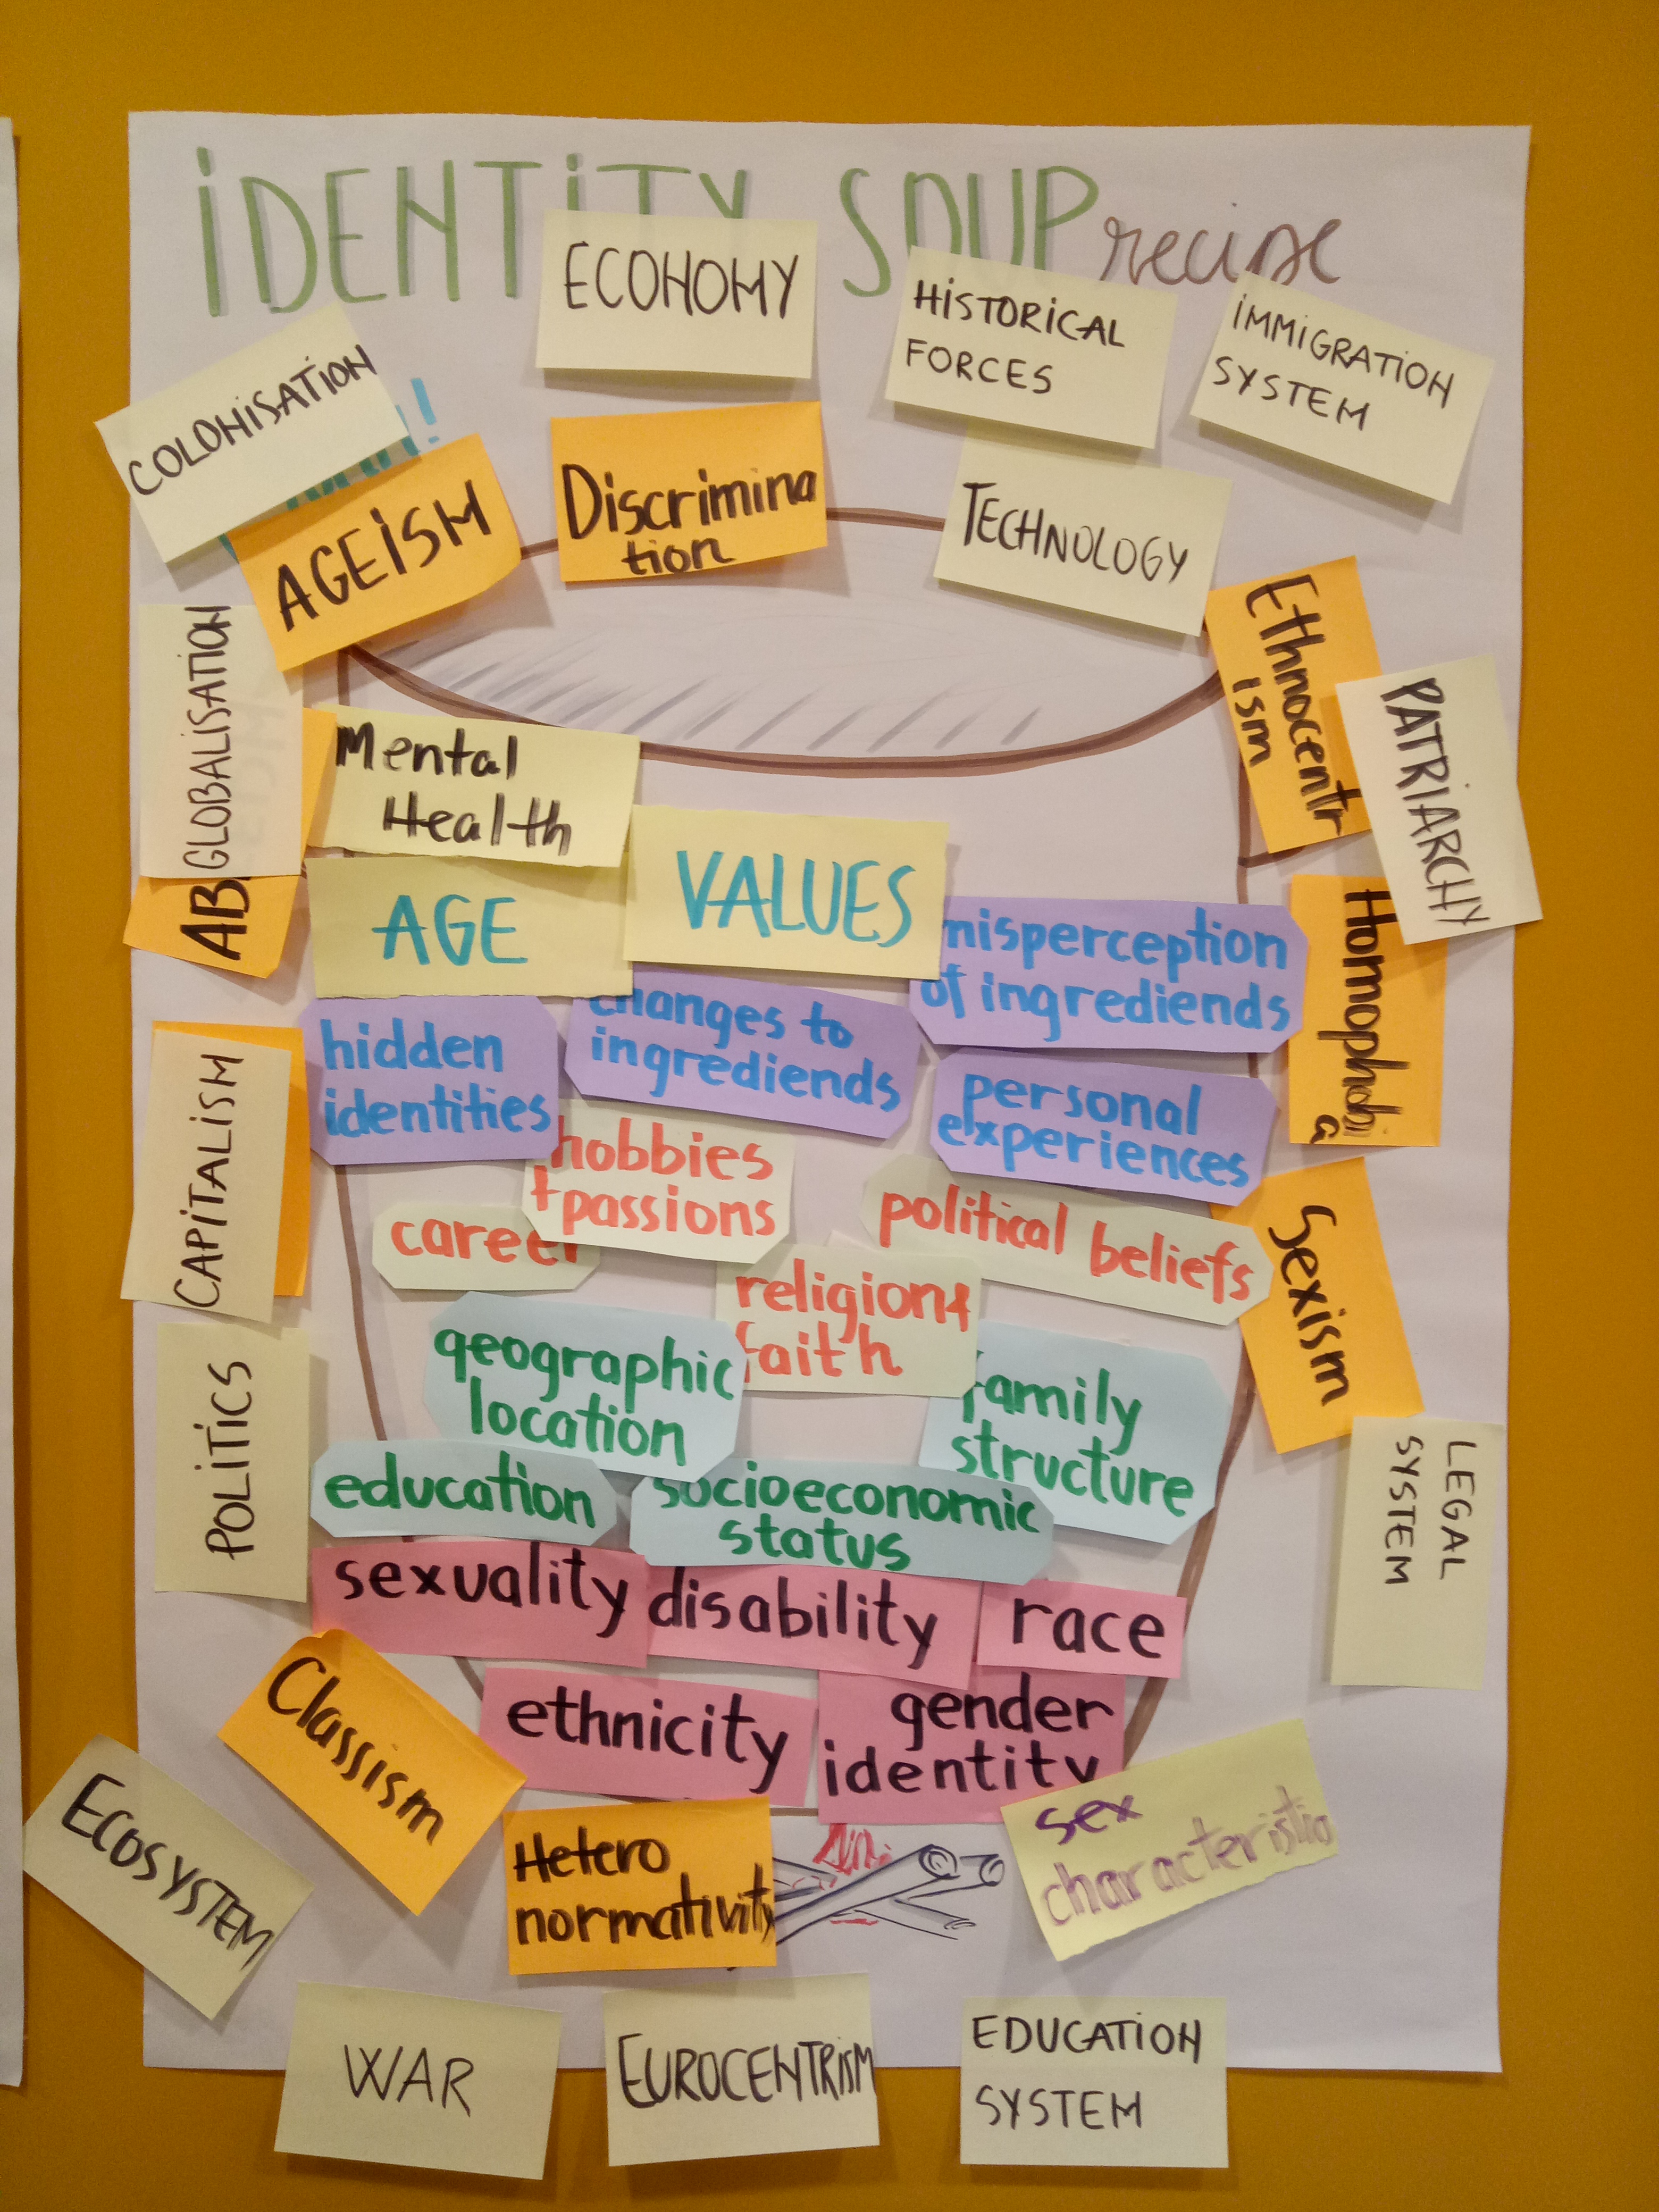 iDENTiTY SOUP recipe
ECONOMY
HiSTORiCAL
FORCES
iMMiGRATiON
SYSTEM
COLONiSATiON
AGEiSM
Discrimina
tion
TECHNOLOGY
Ethnocentr
ism
PATRiARCHY
GLOBALiSATiON
AB
Mental
Health
AGE
VALUES
misperception
of ingrediends
Homophobi
a
hidden
identities
changes to
ingrediends
personal
experiences
CAPiTALiSM
hobbies
+passions
career
political beliefs
religion+
faith
Sexism
geographic
location
family
structure
POLiTiCS
education
socioeconomic
status
LEGAL
SYSTEM
sexuality
disability
race
ethnicity
gender
identity
Classism
sex
characteristic
ECOSYSTEM
Hetero
normativity
WAR
EUROCENTRiSM
EDUCATiON
SYSTEM